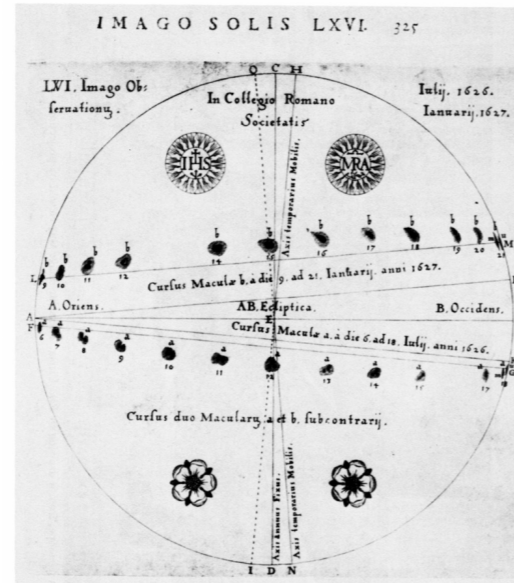 IMAGO SOLIS LXVI. 325
O C H
LVI. Imago Obs
seruationũ.
In Collegio Romano
Societatis
Iulij. 1626.
Ianuarij. 1627.
IHS
MRA
Axis temporarius Mobilis.
b b b b b b b b b b b
L 9 10 11 12 14 15 16 17 18 19 20 21 M
Cursus Maculæ b. à die 9. ad 21. Ianuarij. anni 1627.
A. Oriens. AB. Ecliptica. B. Occidens.
A E
F
Cursus Maculæ a. à die 6. ad 18. Iulij. anni 1626.
a a a a a a a a a a a
6 7 8 9 10 11 12 13 14 15 17 G
Cursus duo Macularũ a et b. subcontrarij.
Axis Annuus Fixus.
Axis temporarius Mobilis.
I D N